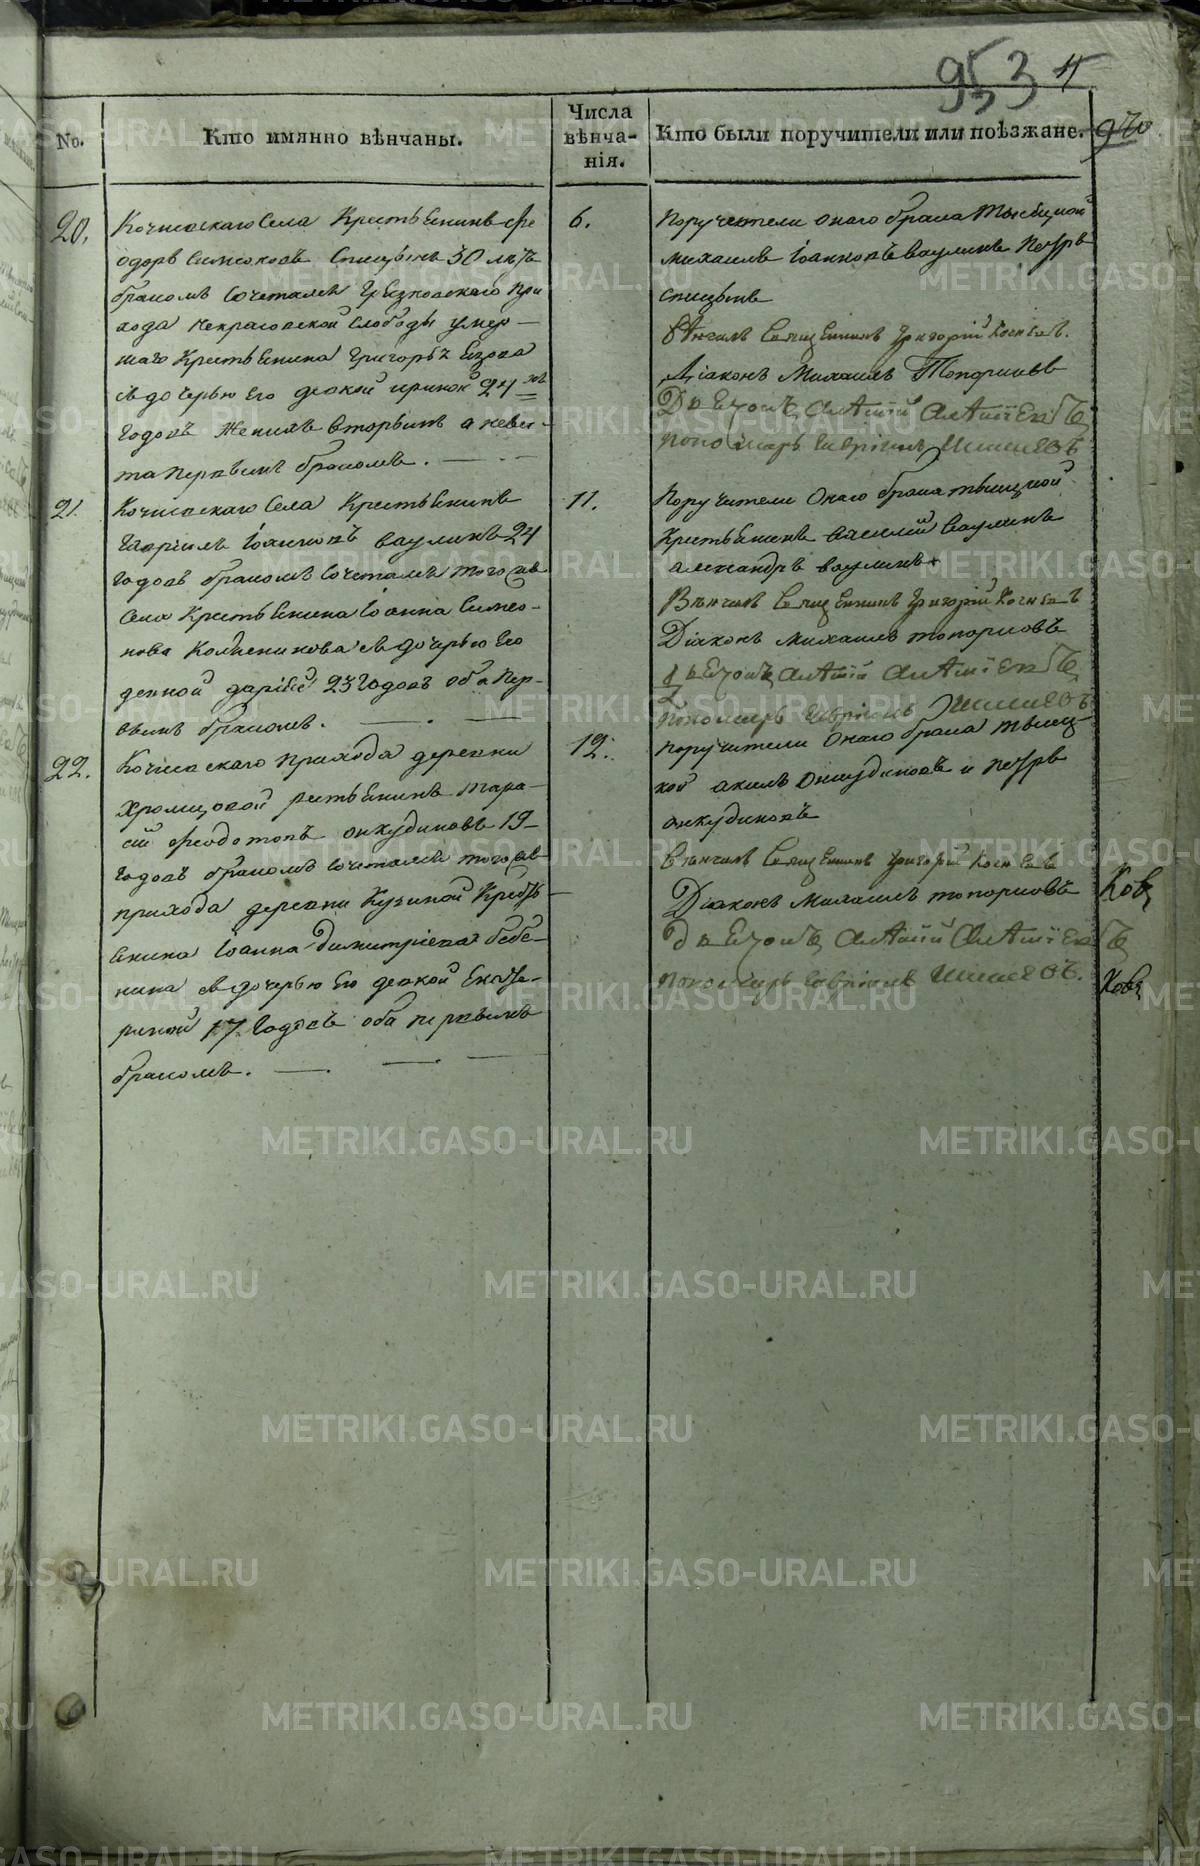 953
4
940
No.
Кто имянно вѣнчаны.
Числа
вѣнча-
нія.
Кто были поручители или поѣзжане.
20.
Кочневскаго села Крестьянинъ Фе
одоръ Симеоновъ Спицынъ 30 лѣтъ
бракомъ сочетался Грязновскаго При
хода Некрасовской слободы умер-
шаго Крестьянина Григорья
съ дочерью его девкой Ириной 24-хъ
годовъ Женихъ вторымъ а невес-
та первымъ бракомъ.
6.
Поручители онаго брака Тысецкой
Михаилъ Іоанновъ Ваулинъ Петръ
Спицынъ
Вѣнчалъ Священникъ Григорій
Діаконъ Михаилъ Топорковъ
Дьечокъ
Пономарь Гавріилъ Шишевъ
21.
Кочневскаго села Крестьянинъ
Гавріилъ Іоанновъ Ваулинъ 24
годовъ бракомъ сочетался тогожъ
села Крестьянина Іоанна Симео-
нова съ дочерью его
девкой Даріей 23 годовъ оба пер-
вымъ бракомъ.
11.
Поручители онаго брака тысецкой
Крестьянинъ Василій Ваулинъ
Александръ Ваулинъ
Вѣнчалъ Священникъ Григорій
Діаконъ Михаилъ Топорковъ
Дьечокъ
Пономарь Гавріилъ Шишевъ
22.
Кочневскаго прихода деревни
Хромцовой рестьянинъ Тара-
сій Федотовъ Анкудиновъ 19-
годовъ бракомъ сочетался тогожъ
прихода деревни Кучиной Кресть-
енина Іоанна Димитріева Бебе-
нина съ дочерью его девкой Екате-
риной 17 годовъ оба первымъ
бракомъ.
12.
Поручители онаго брака тысец-
кой Акимъ Анкудиновъ и Петръ
Анкудиновъ
Вѣнчалъ Священникъ Григорій
Діаконъ Михаилъ Топорковъ
Дьечокъ
Пономарь Гавріилъ Шишевъ.
METRIKI.GASO-URAL.RU